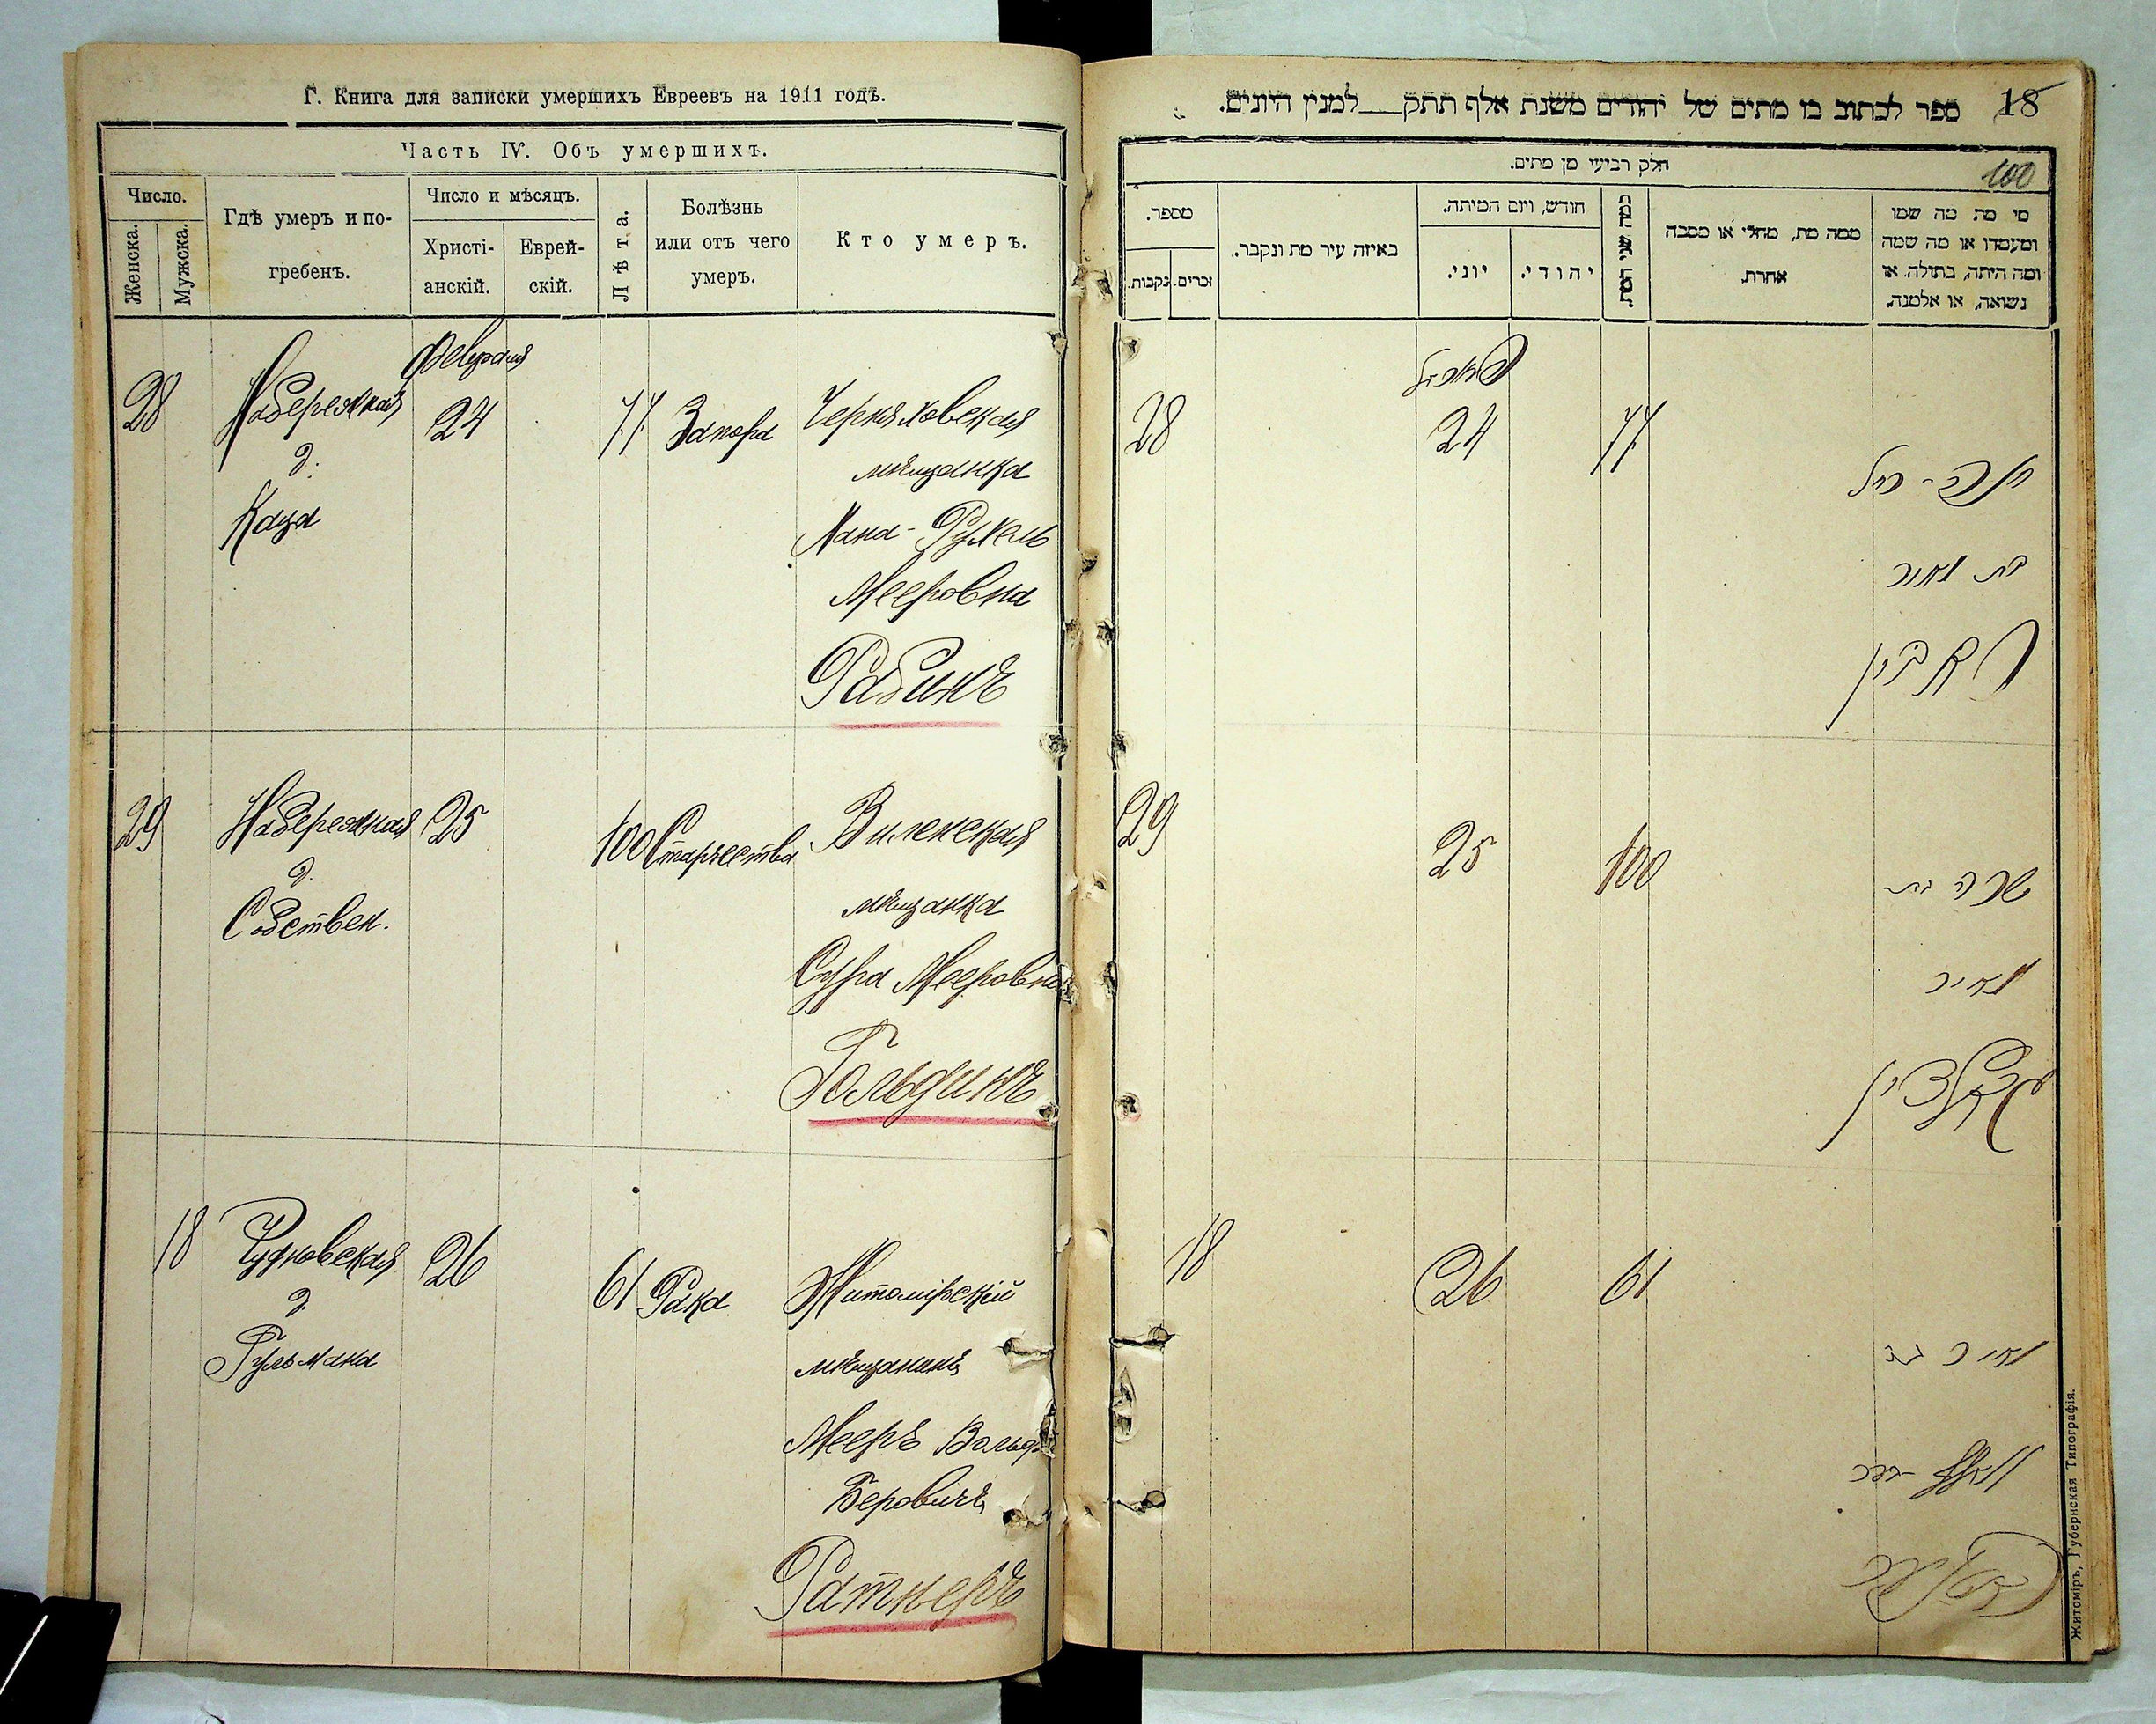 Г. Книга для записки умершихъ Евреевъ на 1911 годъ.
Часть IV. Объ умершихъ.
Число.
Женска.
Мужска.
Гдѣ умеръ и по-
гребенъ.
Число и мѣсяцъ.
Христі-
анскій.
Еврей-
скій.
Лѣта.
Болѣзнь
или отъ чего
умеръ.
Кто умеръ.
февраля
28
Набережная
д.
Каца
24
77
Запора
Черняховская
мѣщанка
Хана-Рухель
Мееровна
Рабинъ
29
Набережная
д.
Собствен.
25
100
Старчества
Виленская
мѣщанка
Сура Мееровна
Гольдинъ
18
Чудновская
д.
Гульмана
26
61
Рака
Житомірскій
мѣщанинъ
Мееръ Вольфъ
Беровичъ
Ратнеръ
ספר לכתוב בו מתים של יהודים משנת אלף תתק למנין היונים.
18
100
חלק רביעי מן מתים.
מספר.
נקבות.
זכרים.
באיזה עיר מת ונקבר.
חודש, ויום המיתה.
יוני.
יהודי.
כמה שני המת.
ממה מת, מחלי או מסבה
אחרת.
מי מת מה שמו
ומעמדו או מה שמה
ומה היתה, בתולה, או
נשואה, או אלמנה.
28
24
77
חנה-רחל
בת מאיר
ראבין
29
25
100
שרה בת
מאיר
גאלדין
18
26
61
מאיר
וואלף
ראטנער
Житоміръ, Губернская Типографія.